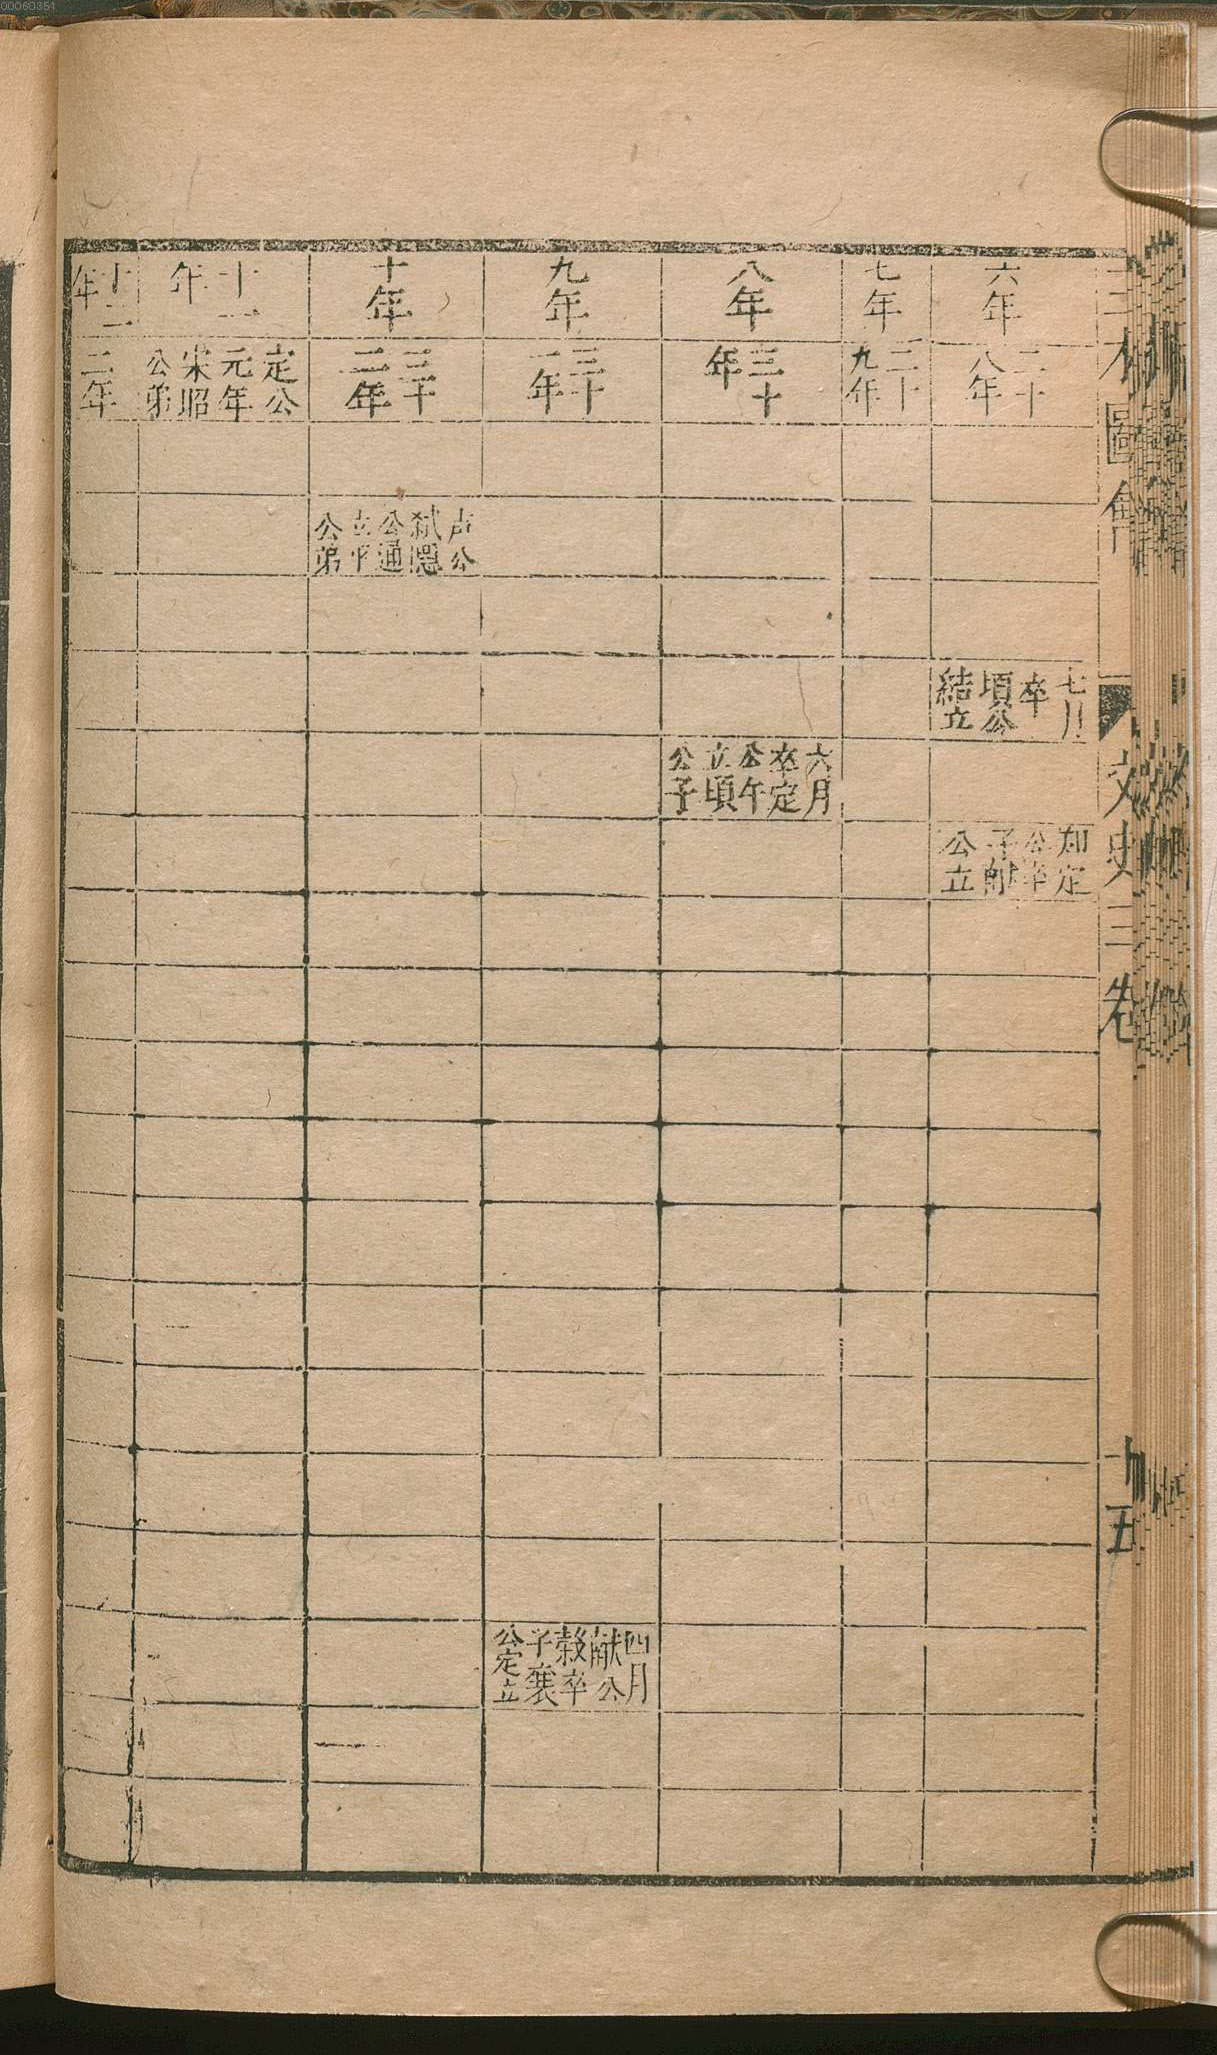 00060351
三才圖會
文史三卷
十五
六年
二十
八年
七月
卒
頃公
結立
知定
公卒
子獻
公立
七年
二十
九年
八年
三十
年
六月
卒定
公午
立頃
公子
九年
三十
一年
四月
献公
穀卒
子襄
公定立
十年
三十
二年
声公
弑隱
公通
立
公弟
十一
年
定公
元年
宋昭
公弟
十二
年
二年